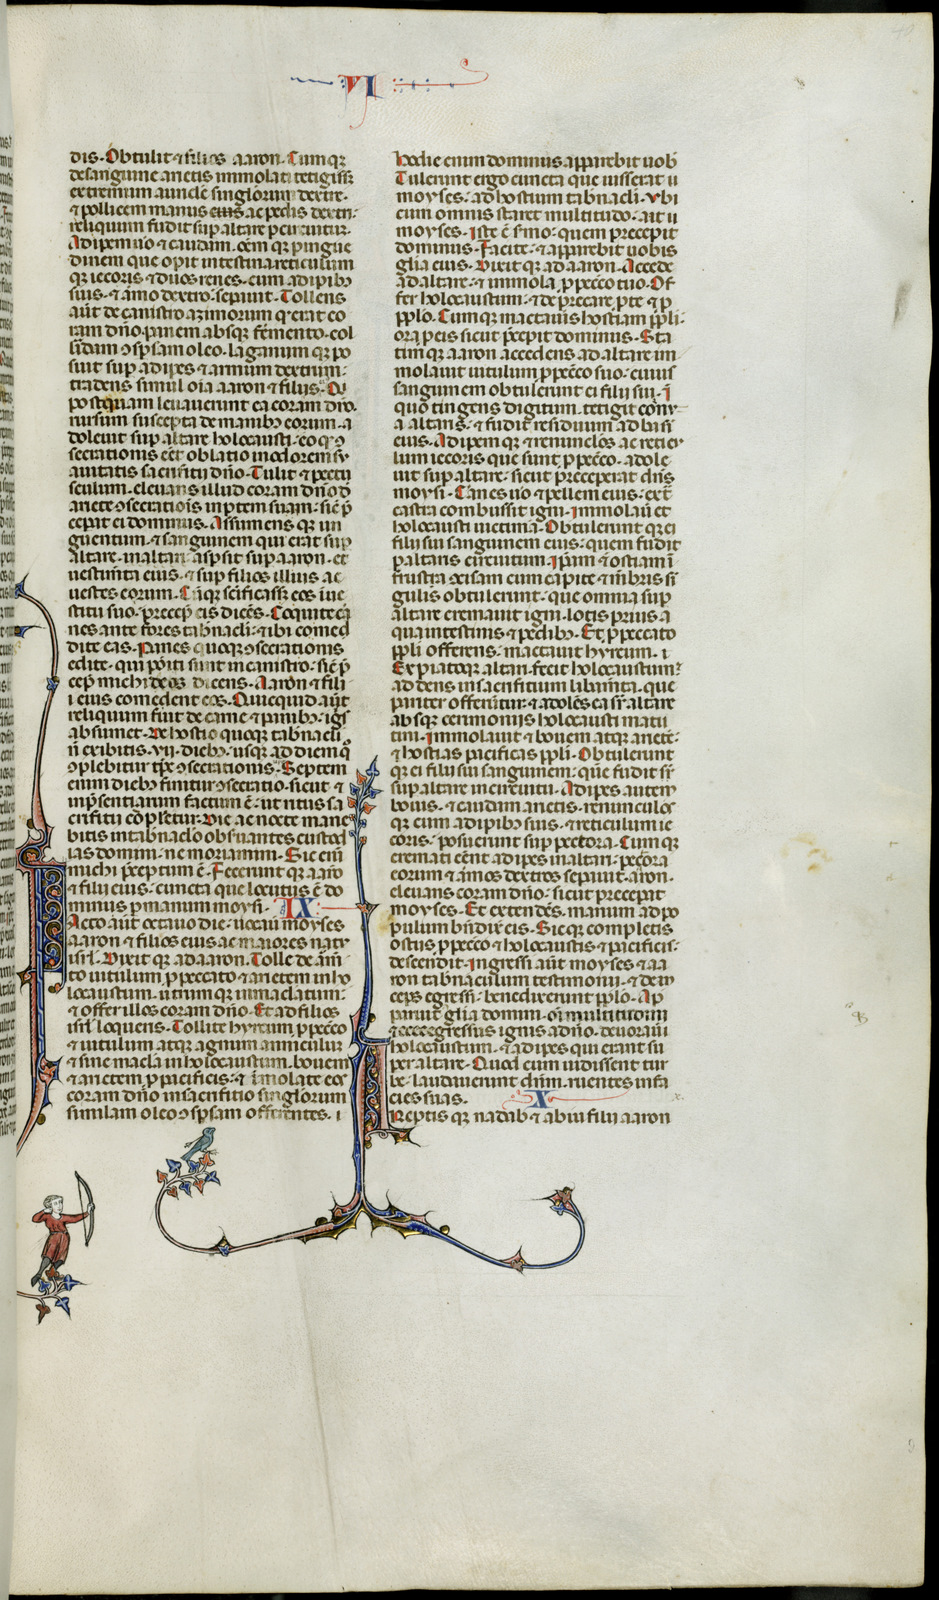 VI
dis. Obtulit ⁊ filios aaron. Cumq;
de sanguine arietis immolati tetigiss;
extremum auriclē singlorum dextre.
⁊ pollicem manus eius ac pedis dextri.
reliquum fudit sup altare p circuitur.
Adipem uō ⁊ caudam. oēm q; pingue
dinem que opit intestina. reticulum
q; iecoris. ⁊ duos renes. cum adipibȝ
suis. ⁊ armo dextro. sepauit. Tollens
aūt de canistro azimorum q̄ erat co
ram dño. panem absq; fermento. col
liridam ꝯspsam oleo. laganum q; po
suit sup adipes ⁊ armum dextrum.
tradens simul oīa aaron ⁊ filiis. Qi
postquam leuauerunt ea coram dño.
rursum suscepta de manibȝ eorum. a
doleuit sup altare holocausti. eo q̄ ꝯ
secrationis eēt oblatio in odorem su
auitatis sacrificii dño. Tulit ⁊ pectu
sculum. eleuans illud coram dño d
ariete ꝯsecratiōis in ptem suam. sic̄ p̄
cepit ei dominus. Assumens q; un
guentum. ⁊ sanguinem qui erat sup
altare. in altari. aspsit sup aaron. et
uestimta eius. ⁊ sup filios illius ac
uestes eorum. Cūq; scificass; eos in ue
stitu suo. precep̄ eis dicēs. Coquite car
nes ante fores tabnacli. ⁊ ibi comed
dite eas. Panes quoq; ꝯsecrationis
edite. qui pōiti sunt in canistro. sic̄ p̄
cep̄ michi deus dicens. Aaron ⁊ fili
i eius comedent eos. Quicquid aūt
reliquum fuit de carne ⁊ panibȝ. igis
absumet. De hostio quoq; tabnacli
ñ exibitis. vij. diebȝ. usq; ad diem q̊
ꝯplebitur tp̄s ꝯsecrationis. Septem
enim diebȝ finitur ꝯsecratio. sicut ⁊
inp̄sentiarum factum ē. ut ritus sa
crificii cōpletur. Die ac nocte mane
bitis in tabnaclo obsuantes custod
ias domini. ne moriamini. Sic eni
michi p̄ceptum ē. Fecerunt q; aarō
⁊ filii eius. cuncta que locutus ē do
minus p manum moysi. IX
Facto aūt octauo die. uocau moyses
aaron ⁊ filios eius ac maiores natu
isrl. Dixit q; ad aaron. Tolle de arm̄
to uitulum p peccato ⁊ arietem in ho
locaustum. utrum q; inmaclatum.
⁊ offer illos coram dño. Et ad filios
isrl loquens. Tollite hyrcum p pecc̄o
⁊ uitulum atq; agnum anniculū
⁊ sine macla in holocaustum. bouem
⁊ arietem p pacificis. ⁊ īmolate eos
coram dño in sacrifitio singlorum
similam oleo ꝯspsam offerentes. i
hodie enim dominus apparebit uob
Tulerunt ergo cuncta que iusserat ii
moyses. ad hostium tabnacli. Vbi
cum omnis staret multitudo. ait ii
moyses. Iste ē s̄mo. quem precepit
dominus. Facite. ⁊ apparebit uobis
glia eius. Dixit q; ad aaron. Accede
ad altare. ⁊ immola p pecc̄o tuo. Of
fer holocaustum. ⁊ deprecare p te ⁊ p
pplo. Cum q; mactauis hostiam ppli.
ora p eis sicut p̄cepit dominus. Sta
tim q; aaron accedens ad altare im
molauit uitulum p pecc̄o suo. cuius
sanguinem obtulerunt ei filii sui. I
quo tingens digitum. tetigit cornu
a altaris. ⁊ fudit residuum ad basi
eius. Adipem q; ⁊ renunclōs ac reticu
lum iecoris que sunt p pecc̄o. adole
uit sup altare. sicut preceperat dñs
moysi. Carnes uō ⁊ pellem eius. ext̄
castra combussit igni. Immolau et
holocausti uictima. Obtulerunt q; ei
filii sui sanguinem eius. quem fudit
p altaris circuitum. Ipsam ⁊ ostiam i
frustra ꝯcisam cum capite ⁊ m̄bris si
gulis obtulerunt. que omnia sup
altare cremauit igni. lotis prius a
qua intestinis ⁊ pedibȝ. Et p peccato
ppli offerens. mactauit hyrcum. i
Expiatoq; altari. fecit holocaustum
addens in sacrifitium libam̄ta. que
pariter offeruntur. ⁊ adolēs ea sr̄ altare
absq; cerimoniis holocausti matu
tini. Immolauit ⁊ bouem atq; ariete.
⁊ hostias pacificas ppli. Obtulerunt
q; ei filii sui sanguinem. que fudit sr̄
sup altare in circuitu. Adipes autem
bouis. ⁊ caudam arietis. renunculos
q; cum adipibȝ suis. ⁊ reticulum ie
coris. posuerunt sup pectora. Cum q;
cremati eēnt adipes in altari. pectora
eorum ⁊ armos dextros sepauit aaron.
eleuans coram dño. sicut preceperat
moyses. Et extendēs manum ad po
pulum bn̄dix̄ eis. Sicq; completis
ostiis p pecc̄o ⁊ holocaustis ⁊ pacificis.
descendit. Ingressi aūt moyses ⁊ aa
ron tabnaculum testimonii. ⁊ dein
ceps egressi. benedixerunt pplo. Ap
paruit glia domini. oī multitudini
⁊ ecce egressus ignis a dño. deuorauit
holocaustum. ⁊ adipes qui erant su
per altare. Quod cum uidissent tur
be. laudauerunt dnm. ruentes in fa
cies suas. X
Arreptis q; nadab ⁊ abiu filii aaron